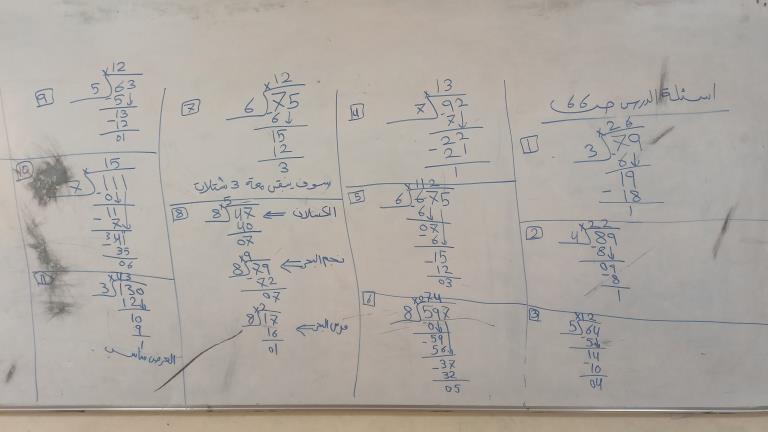 اسئلة الدرس صـ 66
1
26
3 79
6↓
19
- 18
1
2
22
4 89
-8↓
09
-8
1
3
12
5 64
-5↓
14
-10
04
4
13
7 92
-7↓
-22
21
1
5
112
6 675
6↓
07
-6↓
-15
12
03
6
074
8 597
-0↓
-59
56↓
-37
32
05
7
12
6 75
-6↓
15
12
3
سوف يبقى معه 3 شتلات
8
5
8 47 ← الكسلان
40
07
9
8 79 ← نجم البحر
-72
07
2
8 17 ←
16
01
9
12
5 63
-5↓
-13
-12
01
10
15
7 111
-0↓
11
-7↓
-35
06
11
43
3 130
12↓
10
9
1
العرض مناسب